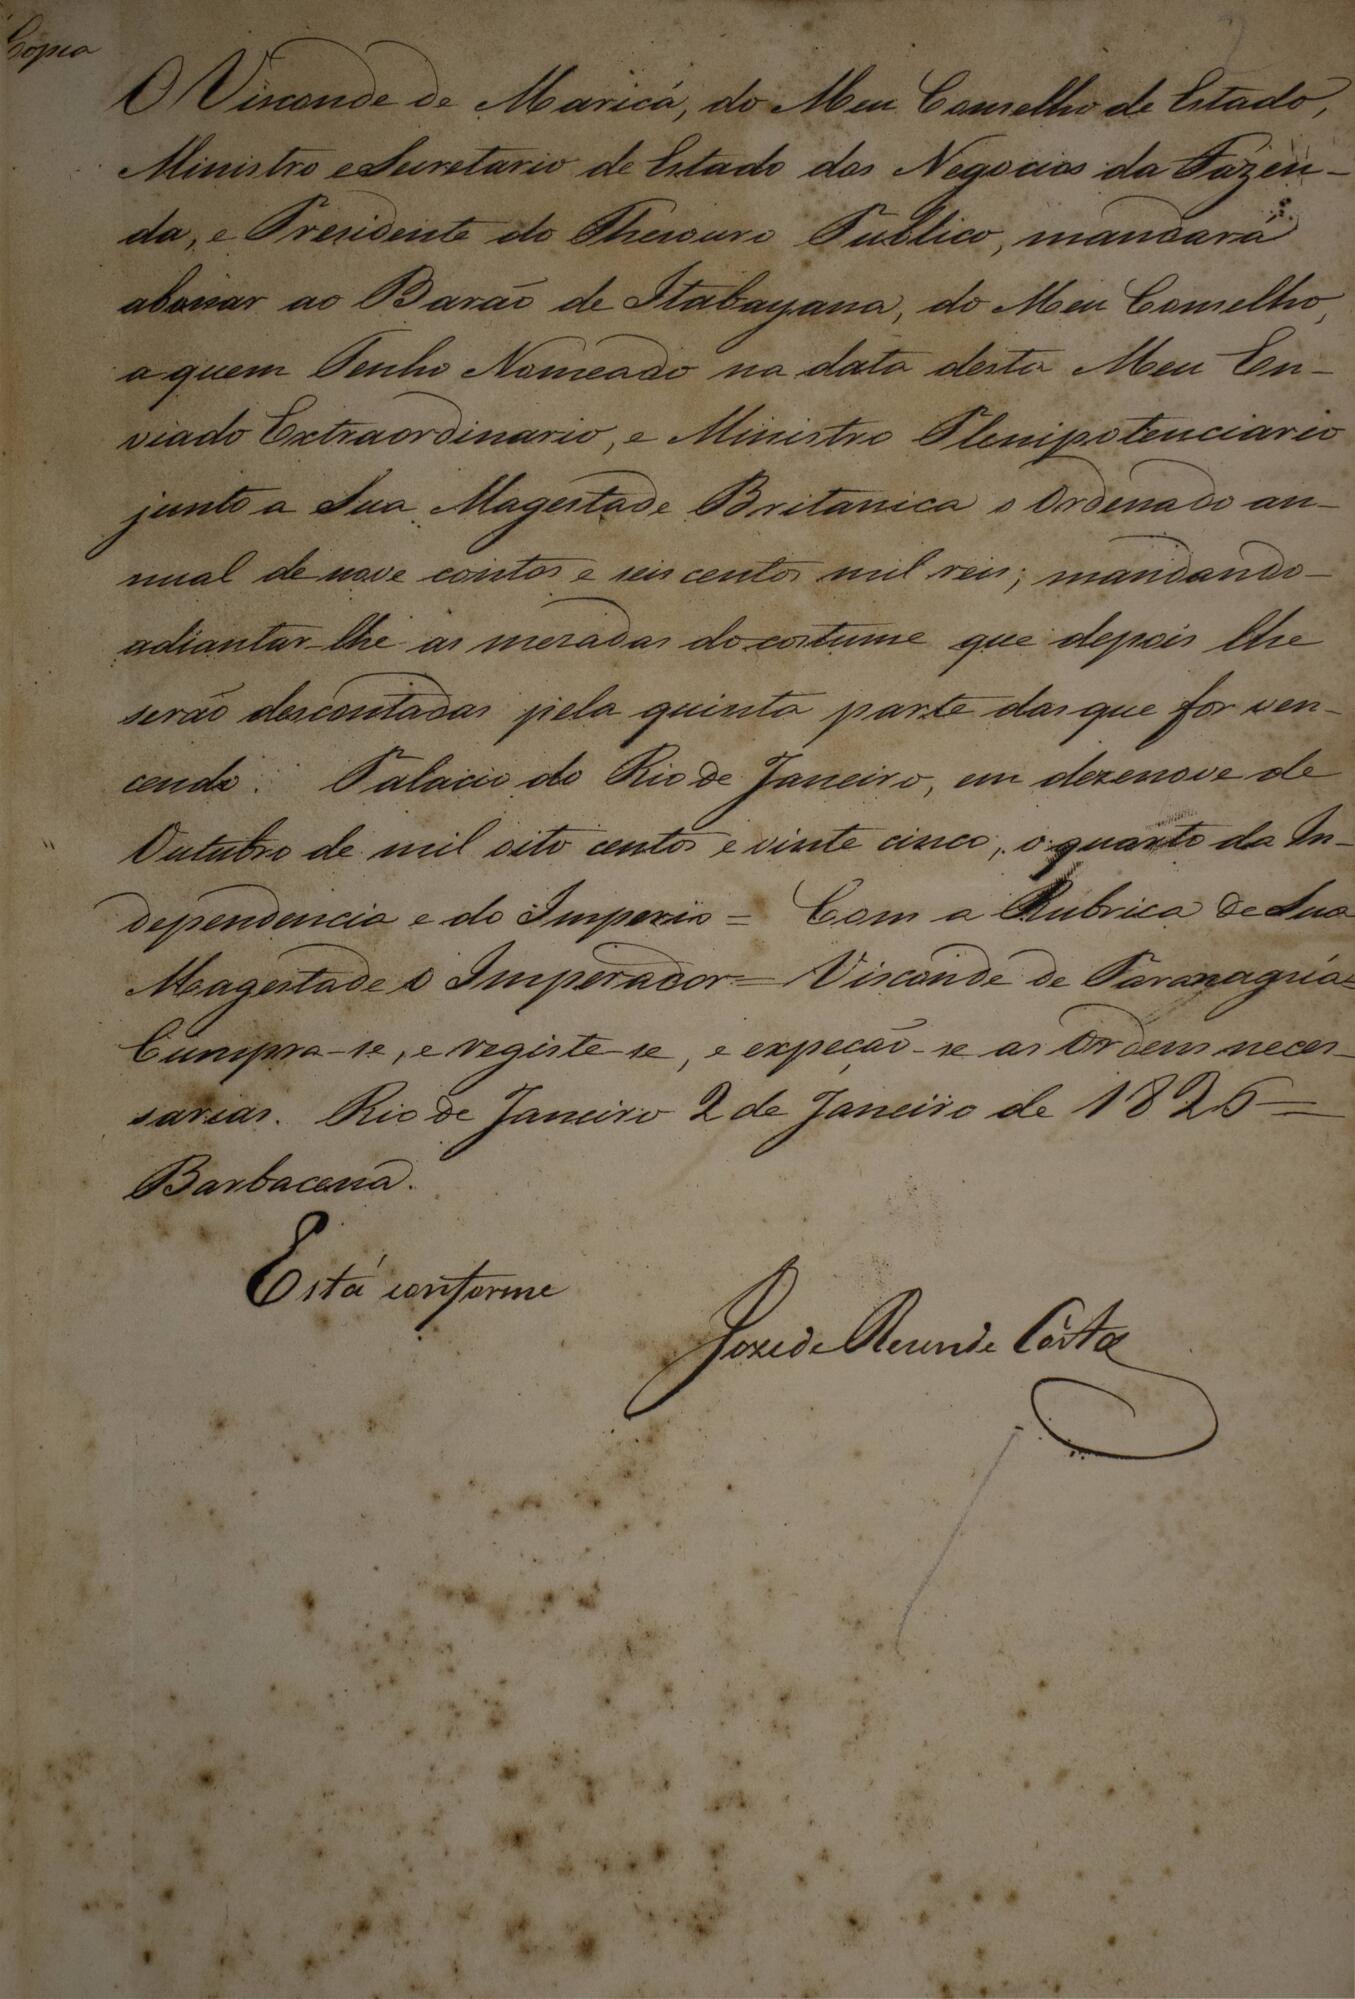 Copia
O Visconde de Maricá, do Meu Conselho de Estado,
Ministro e Secretario de Estado dos Negocios da Fazen-
da, e Presidente do Thesouro Publico, mandará
abonar ao Barão de Itabayana, do Meu Conselho,
a quem Tenho Nomeado na data desta Meu En-
viado Extraordinario, e Ministro Plenipotenciario
junto a Sua Magestade Britanica o Ordenado an-
nual de nove contos e seis centos mil reis; mandando-
adiantar-lhe as mezadas do costume que depois lhe
serão descontadas pela quinta parte das que for ven-
cendo. Palacio do Rio de Janeiro, em dezenove de
Outubro de mil oito centos e vinte cinco, o quarto da In-
dependencia e do Imperio = Com a Rubrica de Sua
Magestade o Imperador = Visconde de Paranaguá =
Cumpra-se, e registe-se, e expeção-se as Ordens neces-
sarias. Rio de Janeiro 2 de Janeiro de 1826 =
Barbacena.
Está conforme
Joze de Resende Costa